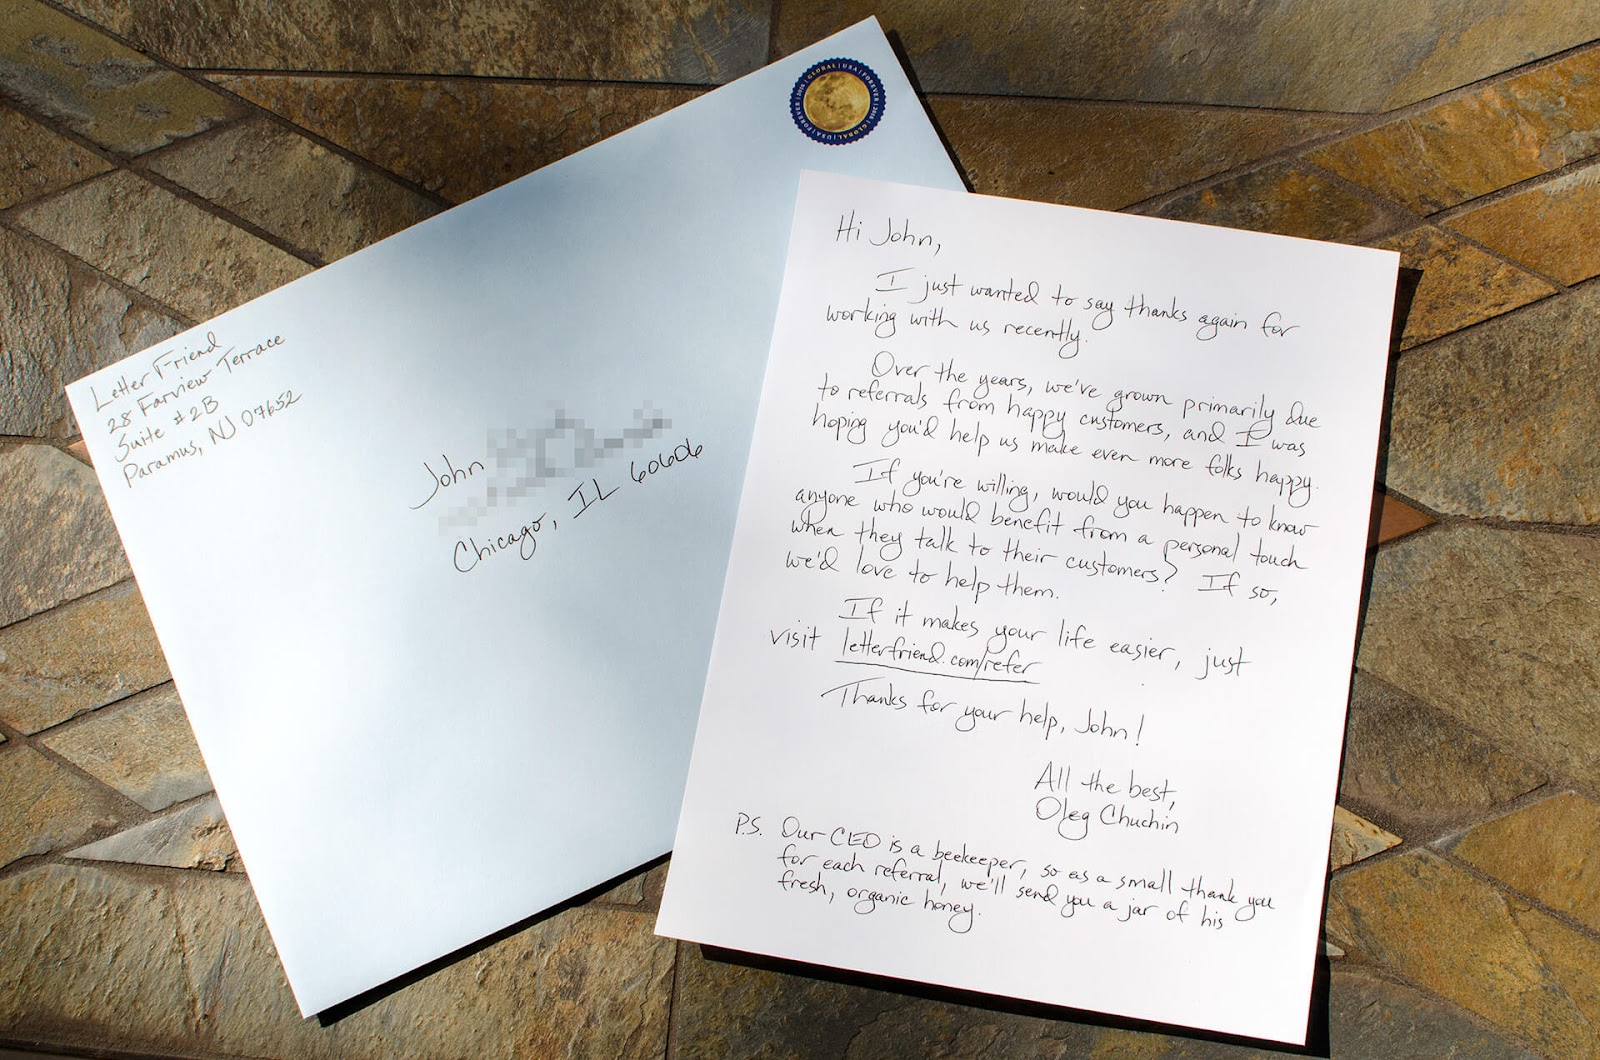 Letter Friend
28 Farview Terrace
Suite #2B
Paramus, NJ 07652
John
Chicago, IL 60606
GLOBAL | USA | FOREVER | 2016 | GLOBAL | USA | FOREVER | 2016
Hi John,
I just wanted to say thanks again for
working with us recently.
Over the years, we've grown primarily due
to referrals from happy customers, and I was
hoping you'd help us make even more folks happy.
If you're willing, would you happen to know
anyone who would benefit from a personal touch
when they talk to their customers? If so,
we'd love to help them.
If it makes your life easier, just
visit letterfriend.com/refer
Thanks for your help, John!
All the best,
Oleg Chuchin
P.S. Our CEO is a beekeeper, so as a small thank you
for each referral, we'll send you a jar of his
fresh, organic honey.